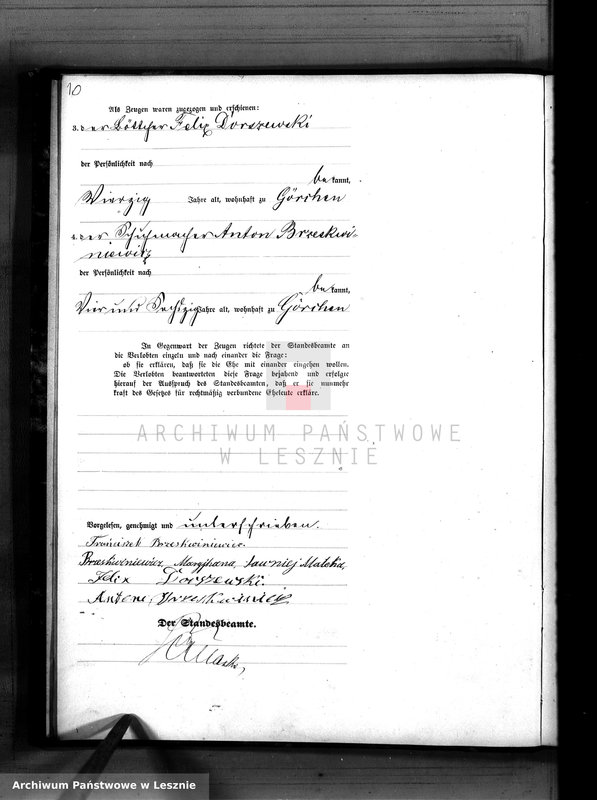 10
Als Zeugen waren zugezogen und erschienen:
3. der Böttcher Felix Dorszewski
der Persönlichkeit nach
bekannt,
Vierzig Jahre alt, wohnhaft zu Görchen
4. der Schuhmacher Anton Brzeskwi-
niewicz
der Persönlichkeit nach
bekannt,
Vier und Sechzig Jahre alt, wohnhaft zu Görchen
In Gegenwart der Zeugen richtete der Standesbeamte an
die Verlobten einzeln und nach einander die Frage:
ob sie erklären, daß sie die Ehe mit einander eingehen wollen.
Die Verlobten beantworteten diese Frage bejahend und erfolgte
hierauf der Ausspruch des Standesbeamten, daß er sie nunmehr
kraft des Gesetzes für rechtmäßig verbundene Eheleute erkläre.
ARCHIWUM PAŃSTWOWE
W LESZNIE
Vorgelesen, genehmigt und unterschrieben.
Franciszek Brzeskwiniewicz
Brzeskwiniewicz, Maryjhana, dawniej Matecka
Felix Dorszewski.
Antoni Brzeskwiniewicz
Der Standesbeamte.
Archiwum Państwowe w Lesznie